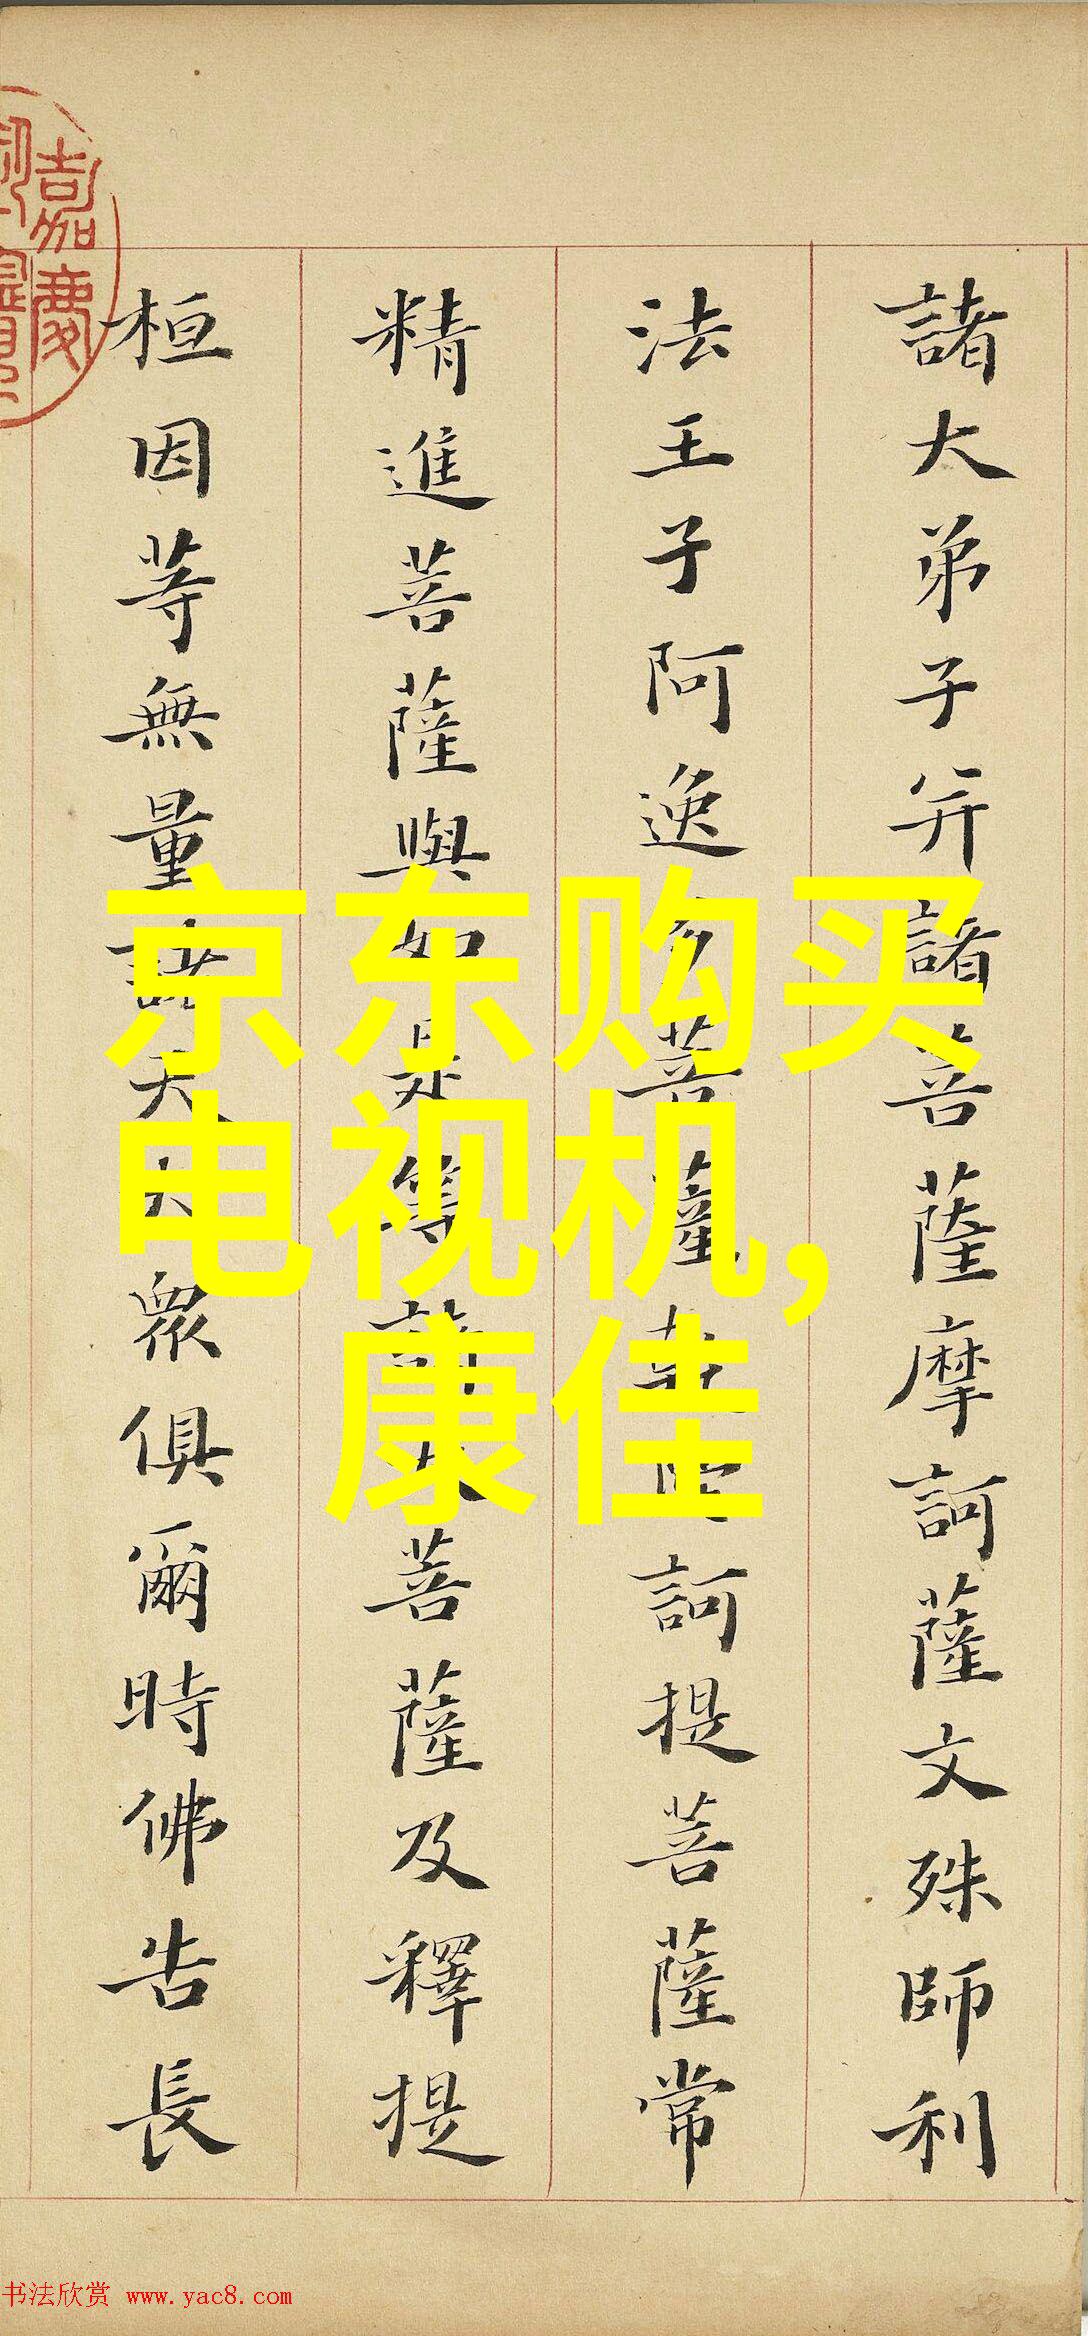 諸大弟子并諸菩薩摩訶薩文殊師利
法王子阿逸菩薩訶提菩薩常
精進菩薩與如是等諸大菩薩及釋提
桓因等無量諸天大眾俱爾時佛告長
嘉慶
京东购买
电视机，
康佳
书法欣赏 www.yac8.com